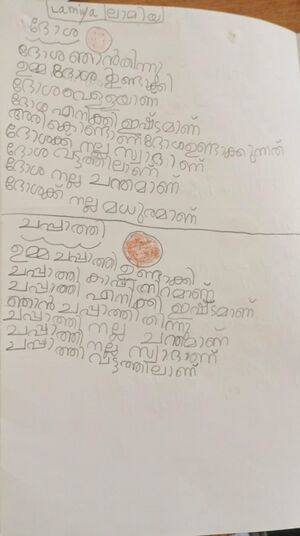 Lamiya ലാമിയ
ദോശ
ദോശ ഞാൻ തിന്നു
ഉമ്മ ദോശ ഉണ്ടാക്കി
ദോശ വെള്ളയാണ്
ദോശ എനിക്ക് ഇഷ്ടമാണ്
അരി കൊണ്ടാണ് ദോശ ഉണ്ടാക്കുന്നത്
ദോശക്ക് നല്ല സ്വാദാണ്
ദോശ വട്ടത്തിലാണ്
ദോശ നല്ല ചന്തമാണ്
ദോശക്ക് നല്ല മധുരമാണ്
ചപ്പാത്തി
ഉമ്മ ചപ്പാത്തി ഉണ്ടാക്കി
ചപ്പാത്തി കാപ്പി നിറമാണ്
ചപ്പാത്തി എനിക്ക് ഇഷ്ടമാണ്
ഞാൻ ചപ്പാത്തി തിന്നു
ചപ്പാത്തി നല്ല ചന്തമാണ്
ചപ്പാത്തി നല്ല സ്വാദാണ്
ചപ്പാത്തി വട്ടത്തിലാണ്